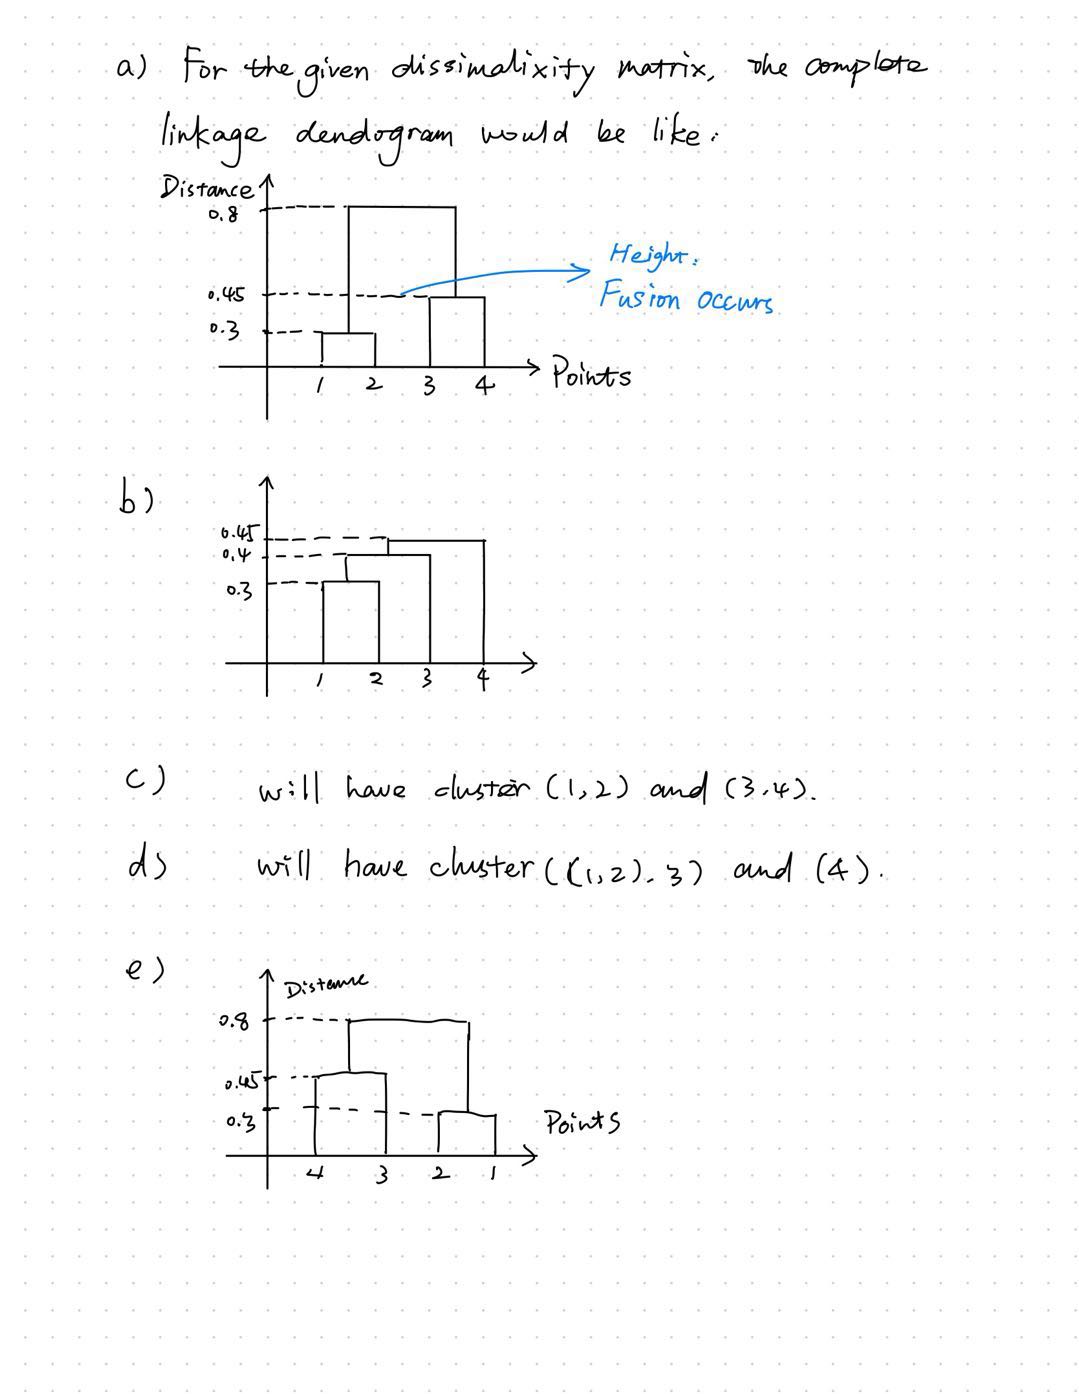 a) For the given dissimalixity matrix, the complete
linkage dendogram would be like:
Distance
0.8
Height:
0.45
Fusion occurs
0.3
1 2 3 4
Points
b)
0.45
0.4
0.3
1 2 3 4
c) will have cluster (1,2) and (3,4).
d) will have cluster ((1,2),3) and (4).
e)
Distance
0.8
0.45
0.3
Points
4 3 2 1